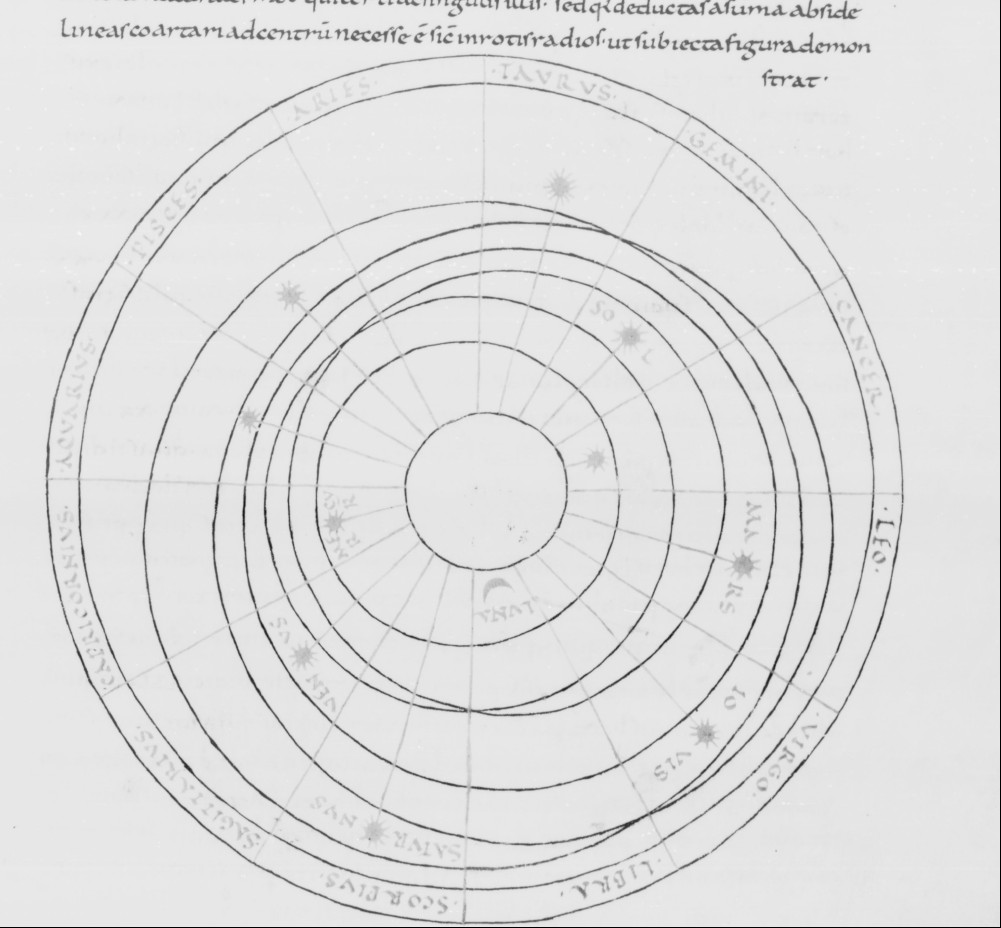 sed qđ deductas a suma abside
lineas coartari ad centrū necesse ē sic̄ in rotis radios· ut subiecta figura demon
strat·
·TAVRVS·
·GEMINI·
·CANCER·
·LEO·
·VIRGO·
·LIBRA·
·SCORPIVS·
·SAGITTARIVS·
·CAPRICORNIVS·
·AQVARIVS·
·PISCES·
·ARIES·
SO L
MA RS
IO VIS
SATVR NVS
VEN VS
MERCVR
LVNA